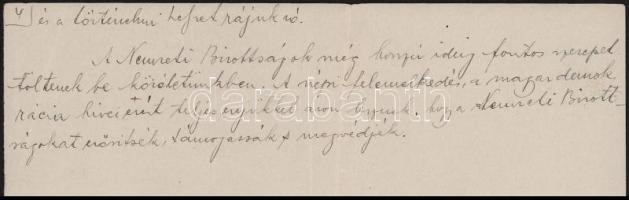 4 és a történelmi helyet rájuk ró.
A Nemzeti Bizottságok még hosszú ideig fontos szerepet
töltenek be közéletünkben. A népi felemelkedés, a magyar demok
rácia hívei ezért teljes erejükkel azon legyenek, hogy a Nemzeti Bizott-
ságokat erősítsék, támogassák s megvédjék.
darabanth